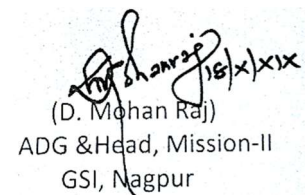 Mohanraj 18/X/XIX
(D. Mohan Raj)
ADG &Head, Mission-II
GSI, Nagpur